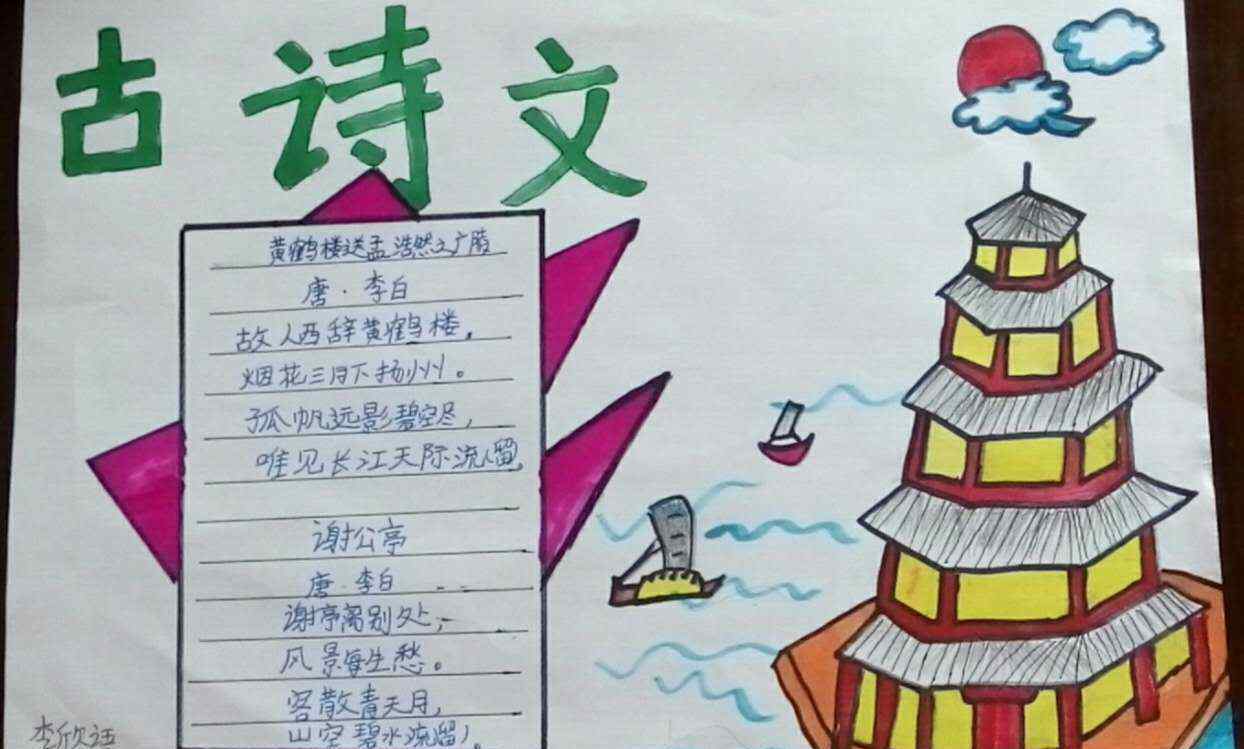 古诗文
黄鹤楼送孟浩然之广陵
唐·李白
故人西辞黄鹤楼。
烟花三月下扬州。
孤帆远影碧空尽,
唯见长江天际流
谢公亭
唐·李白
谢亭离别处,
风景每生愁。
客散青天月,
山空碧水流
李欣语